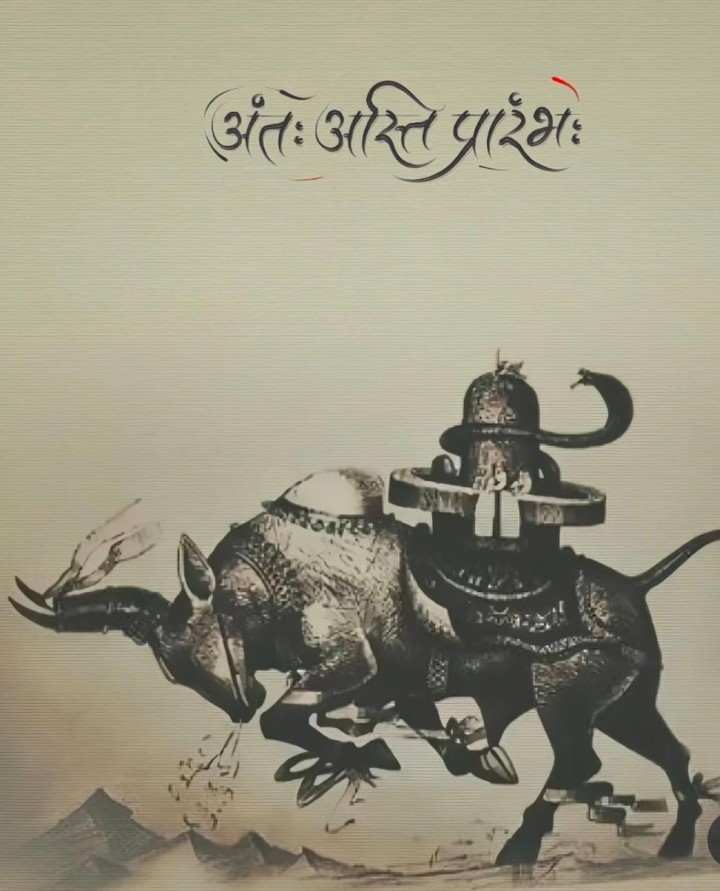 अंतः अस्ति प्रारंभः